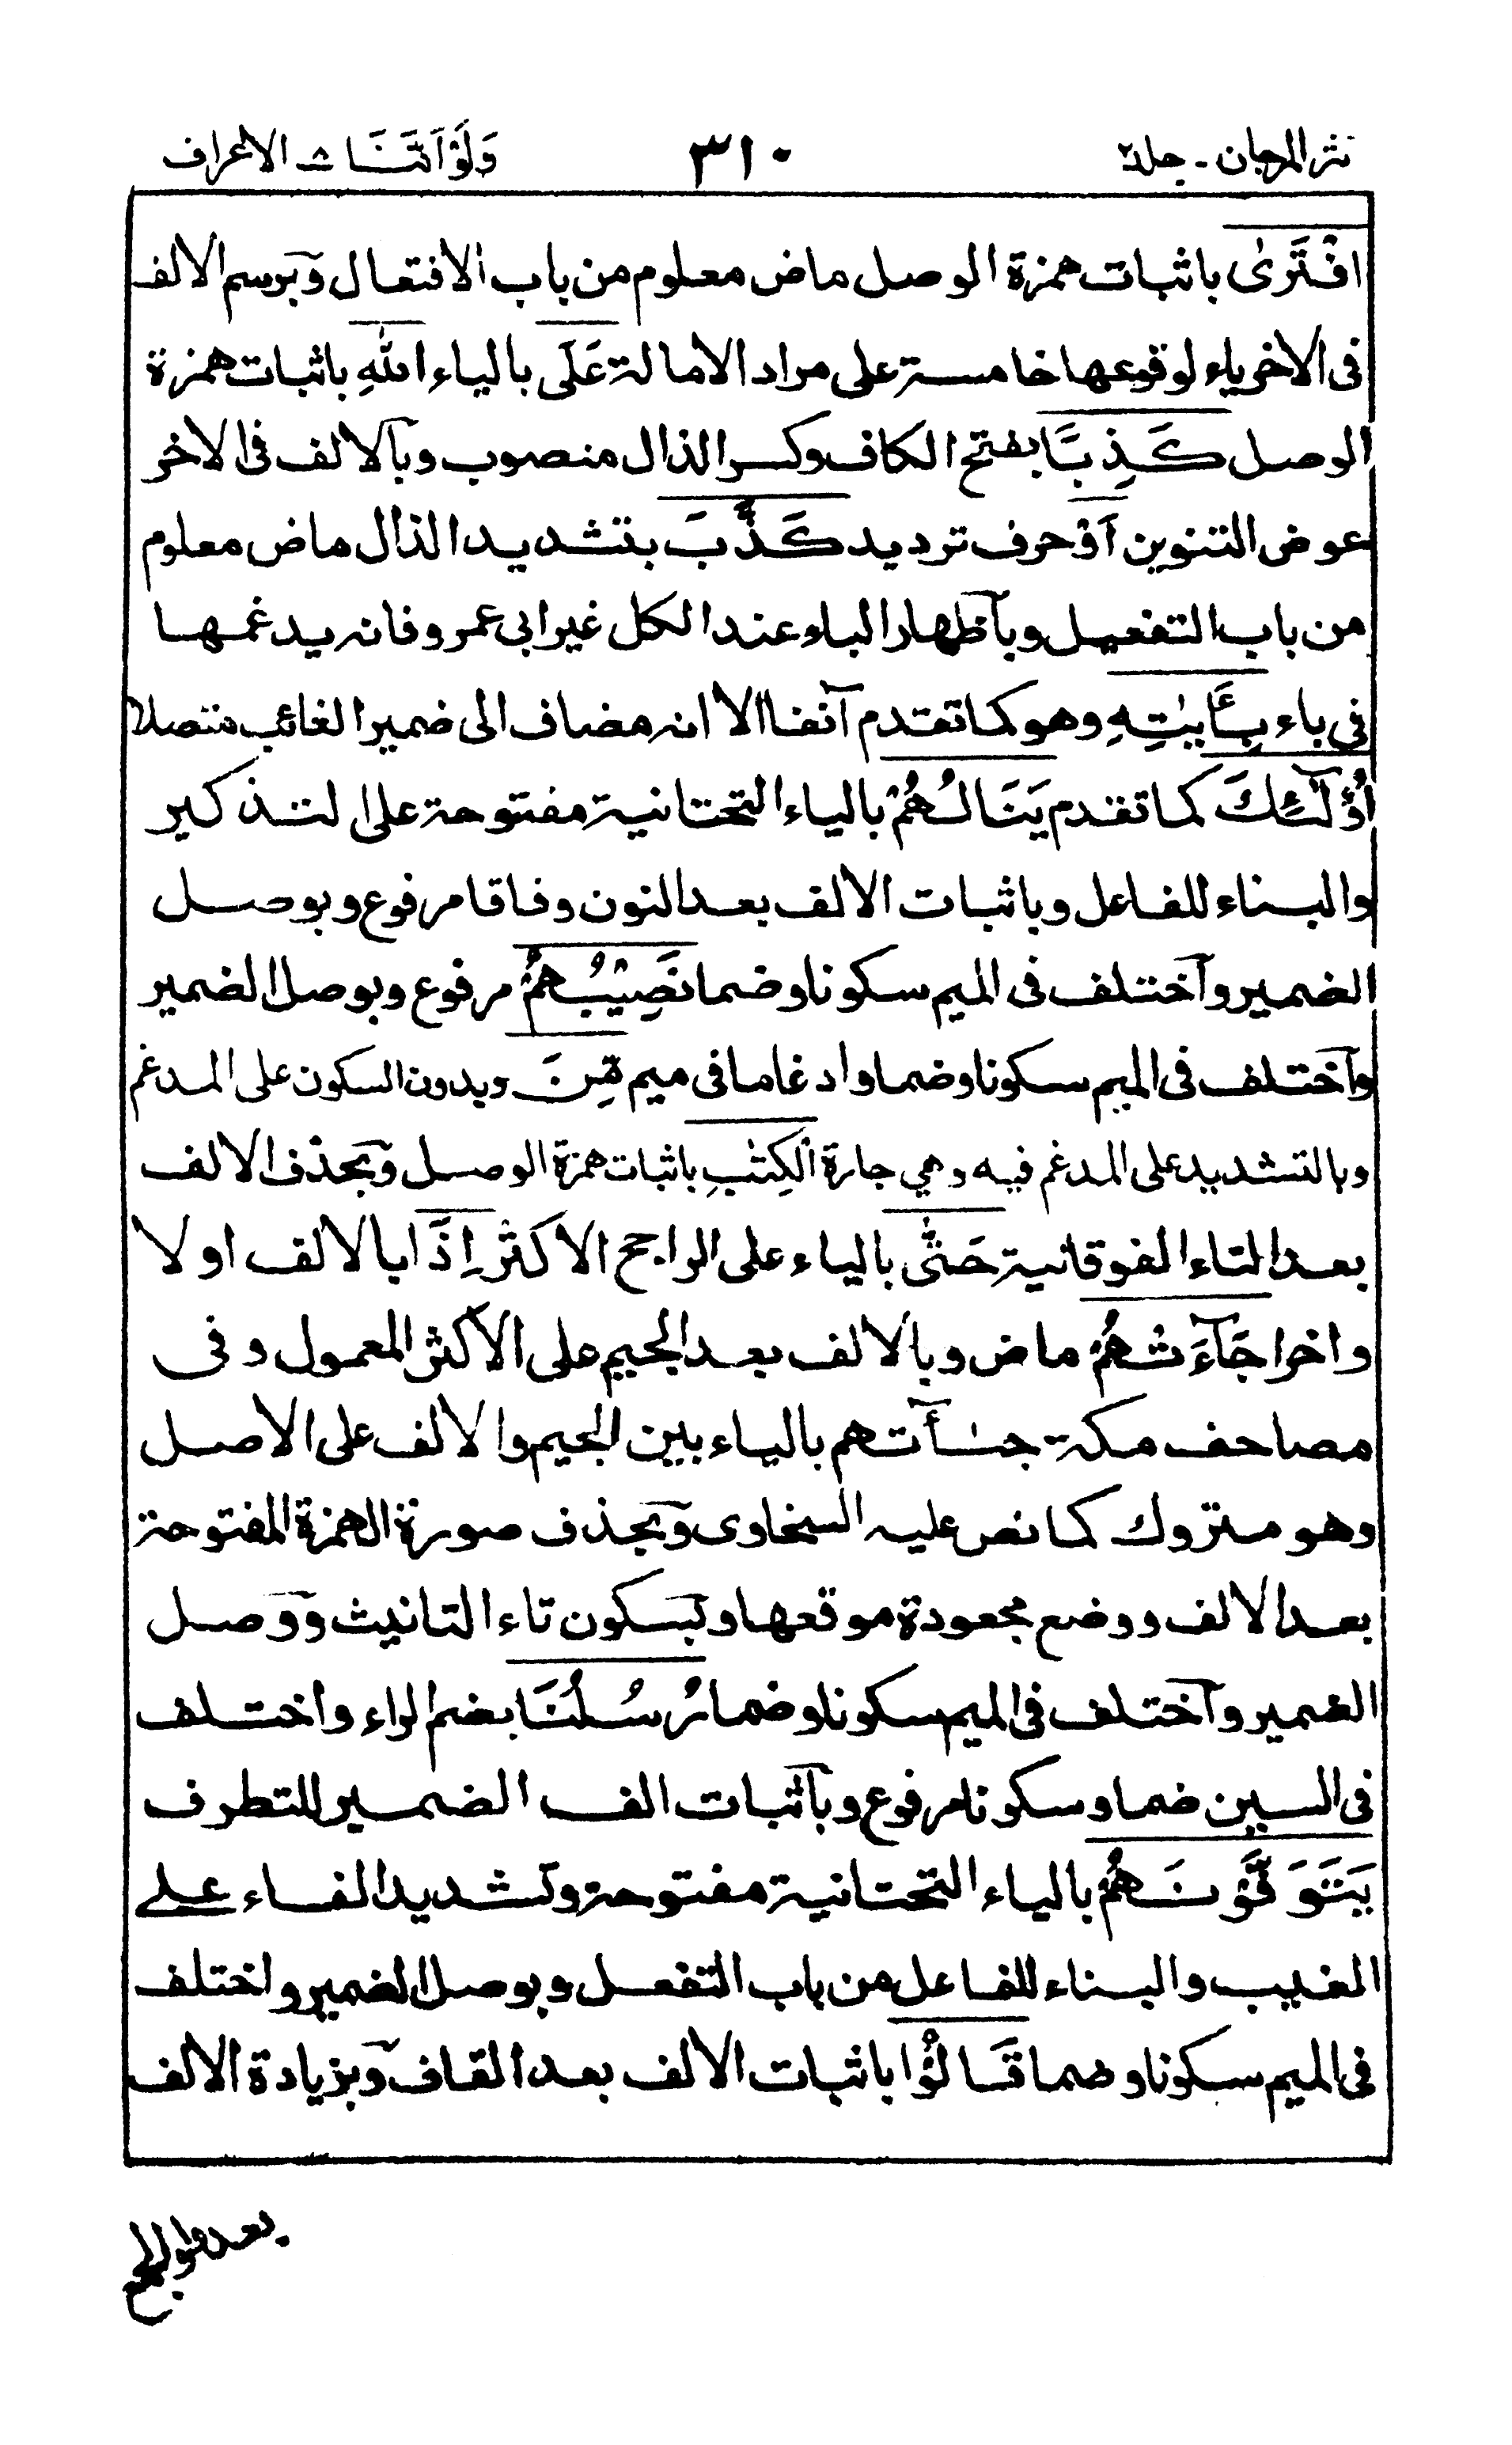 نثر المرجان - جلد۲ ٣١٠ وَلَوْ اَنَّنَا ۸ الاعراف
افْتَرٰى باثبات همزة الوصل ماض معلوم من باب الافتعال وبرسم الالف
فى الاخر ياء لوقوعها خامسة على مراد الامالة عَلَى بالياء اللهِ باثبات همزة
الوصل كَذِبًا بفتح الكاف وكسر الذال منصوب وبالالف فى الاخر
عوض التنوين اَوْ حرف ترديد كَذَّبَ بتشديد الذال ماض معلوم
من باب التفعيل وباظهار الباء عند الكل غير ابى عمرو فانه يدغمها
فى باء بِـَٔايٰتِهٖ وهو كما تقدم آنفا الا انه مضاف الى ضمير الغائب متصلا
اُولٰٓئِكَ كما تقدم يَنَالُهُمْ بالياء التحتانية مفتوحة على التذكير
والبناء للفاعل وباثبات الالف بعد النون وفاقا مرفوع وبوصل
الضمير واختلف فى الميم سكونا وضما نَصِيْبُهُمْ مرفوع وبوصل الضمير
واختلف فى الميم سكونا وضما وادغاما فى ميم مِّنَ وبدون السكون على المدغم
وبالتشديد على المدغم فيه وهي جارة الْكِتٰبِ باثبات همزة الوصل وبحذف الالف
بعد التاء الفوقانية حَتّٰى بالياء على الراجح الاكثر اِذَا بالالف اولا
واخرا جَآءَتْهُمْ ماض وبالالف بعد الجيم على الاكثر المعمول وفى
مصاحف مكة جيأتهم بالياء بين الجيم والالف على الاصل
وهو متروك كما نص عليه السخاوى وبحذف صورة الهمزة المفتوحة
بعد الالف ووضع مجعودة موقعها وبسكون تاء التانيث ووصل
الضمير واختلف فى الميم سكونا وضما رُسُلُنَا بضم الراء واختلف
فى السين ضما وسكونا مرفوع وباثبات الف الضمير للتطرف
يَتَوَفَّوْنَهُمْ بالياء التحتانية مفتوحة وتشديد الفاء على
الغيب والبناء للفاعل من باب التفعل وبوصل الضمير واختلف
فى الميم سكونا وضما قَالُوْا باثبات الالف بعد القاف وبزيادة الالف
بعد واو الجمع